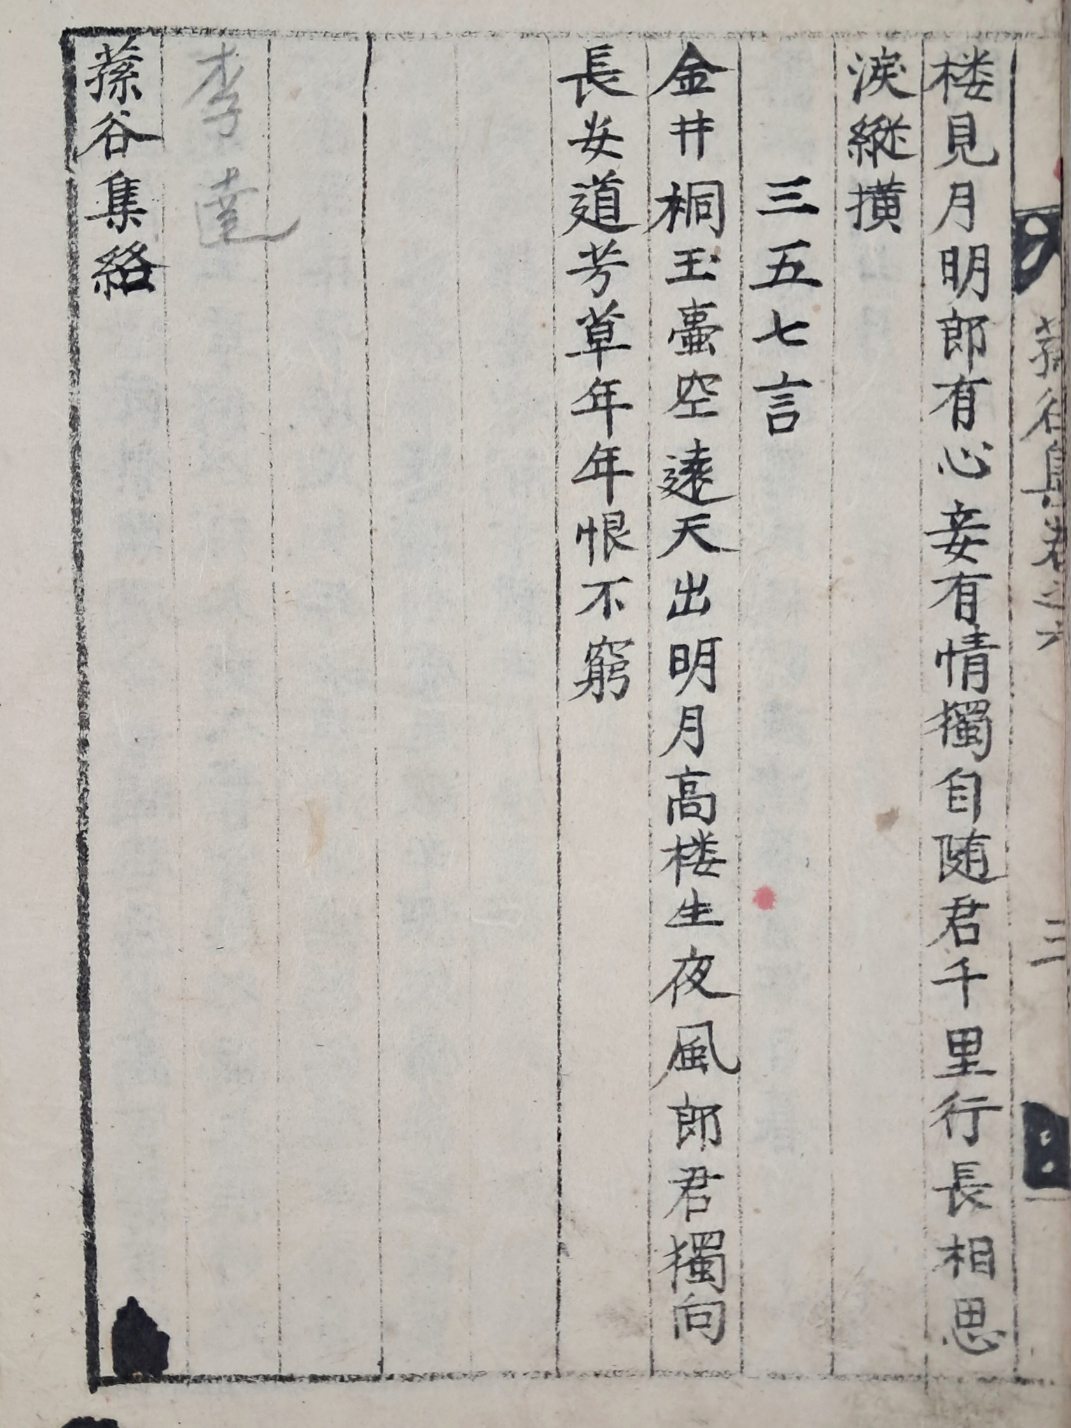 蓀谷集卷之六
三
楼見月明郎有心妾有情獨自随君千里行長相思
淚縱撗
三五七言
金井桐玉壺空遠天出明月高楼生夜風郎君獨向
長安道芳草年年恨不窮
李達
蓀谷集終